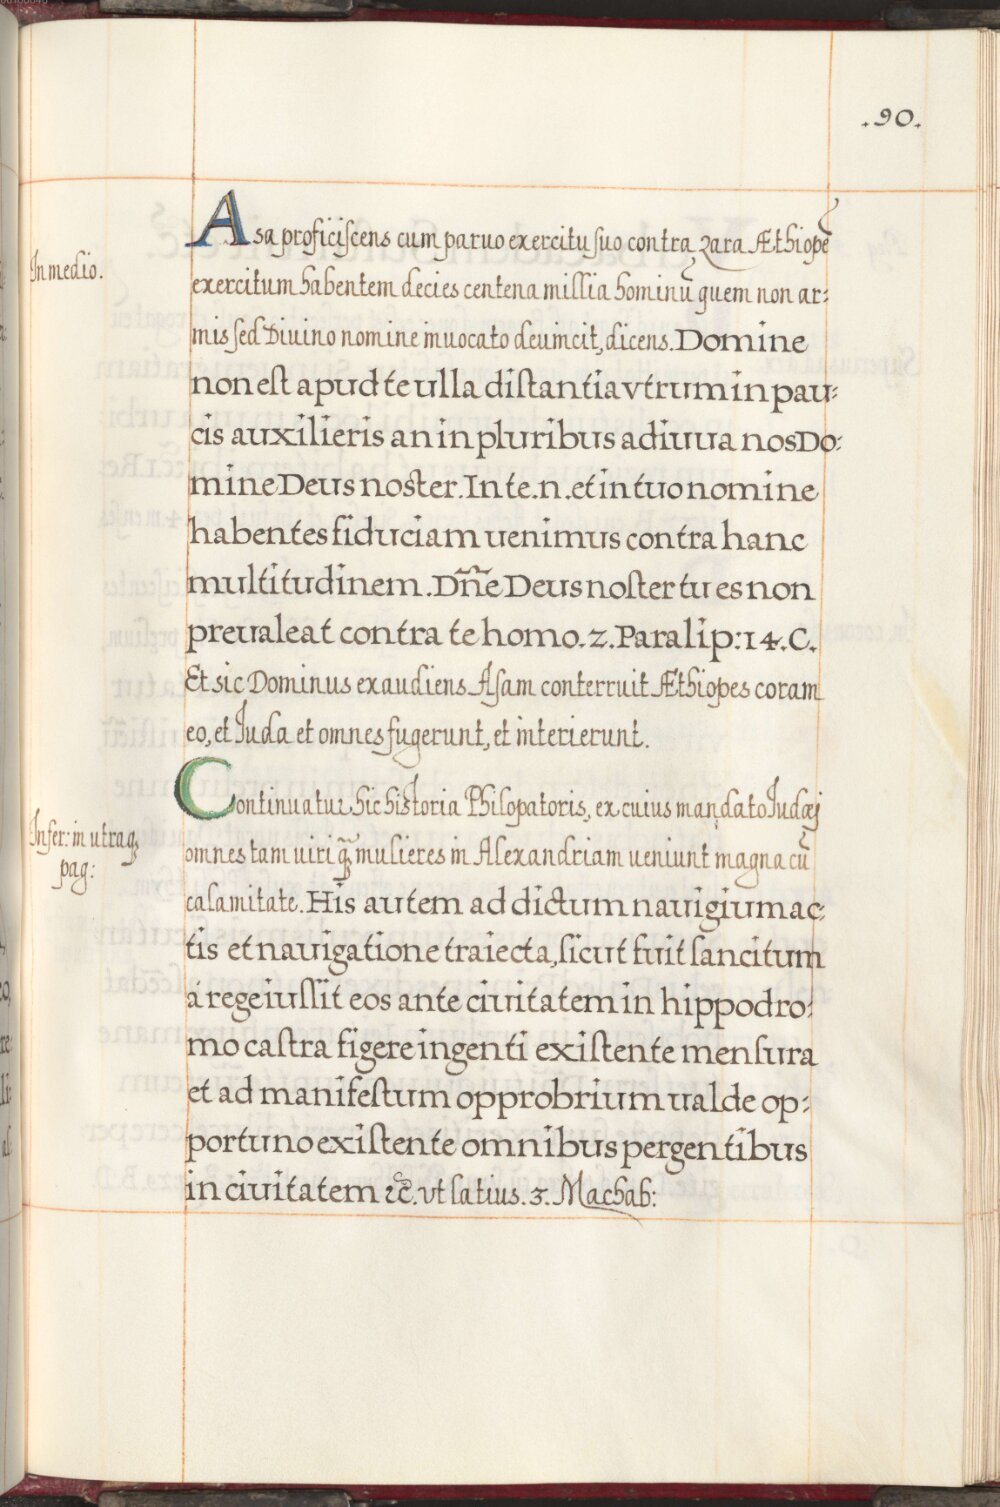 .90.
In medio.
Asa proficiscens cum paruo exercitu suo contra Zara Æthiopē
exercitum habentem decies centena millia hominū quem non ar:
mis sed Diuino nomine inuocato deuincit, dicens. Domine
non est apud te ulla distantia vtrum in pau:
cis auxilieris an in pluribus adiuua nos Do:
mine Deus noster. In te .n. et in tuo nomine
habentes fiduciam uenimus contra hanc
multitudinem. Dñe Deus noster tu es non
preualeat contra te homo. 2. Paralip: 14. C.
Et sic Dominus exaudiens Asam conterruit Æthiopes coram
eo, et Juda et omnes fugerunt, et interierunt.
Infer: in utraq;
pag:
Continuatur hic historia Philopatoris, ex cuius mandato Judæi
omnes tam uiri q̃ mulieres in Alexandriam ueniunt magna cū
calamitate. His autem ad dictum nauigium ac:
tis et nauigatione traiecta, sicut fuit sancitum
à rege iussit eos ante ciuitatem in hippodro:
mo castra figere ingenti existente mensura
et ad manifestum opprobrium ualde op:
portuno existente omnibus pergentibus
in ciuitatem &c. vt latius. 3. Machab: